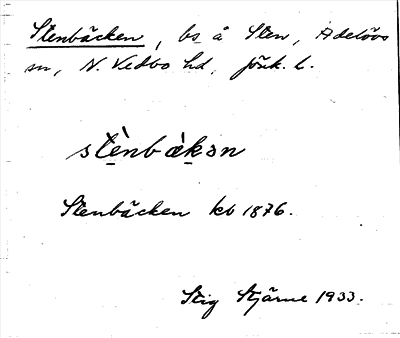 Stenbäcken, bs å Sten, Adelövs
sn, N. Vedbo hd, jönk. l.
stènbæ̀kən
Stenbäcken kb 1876.
Stig Stjärne 1933.